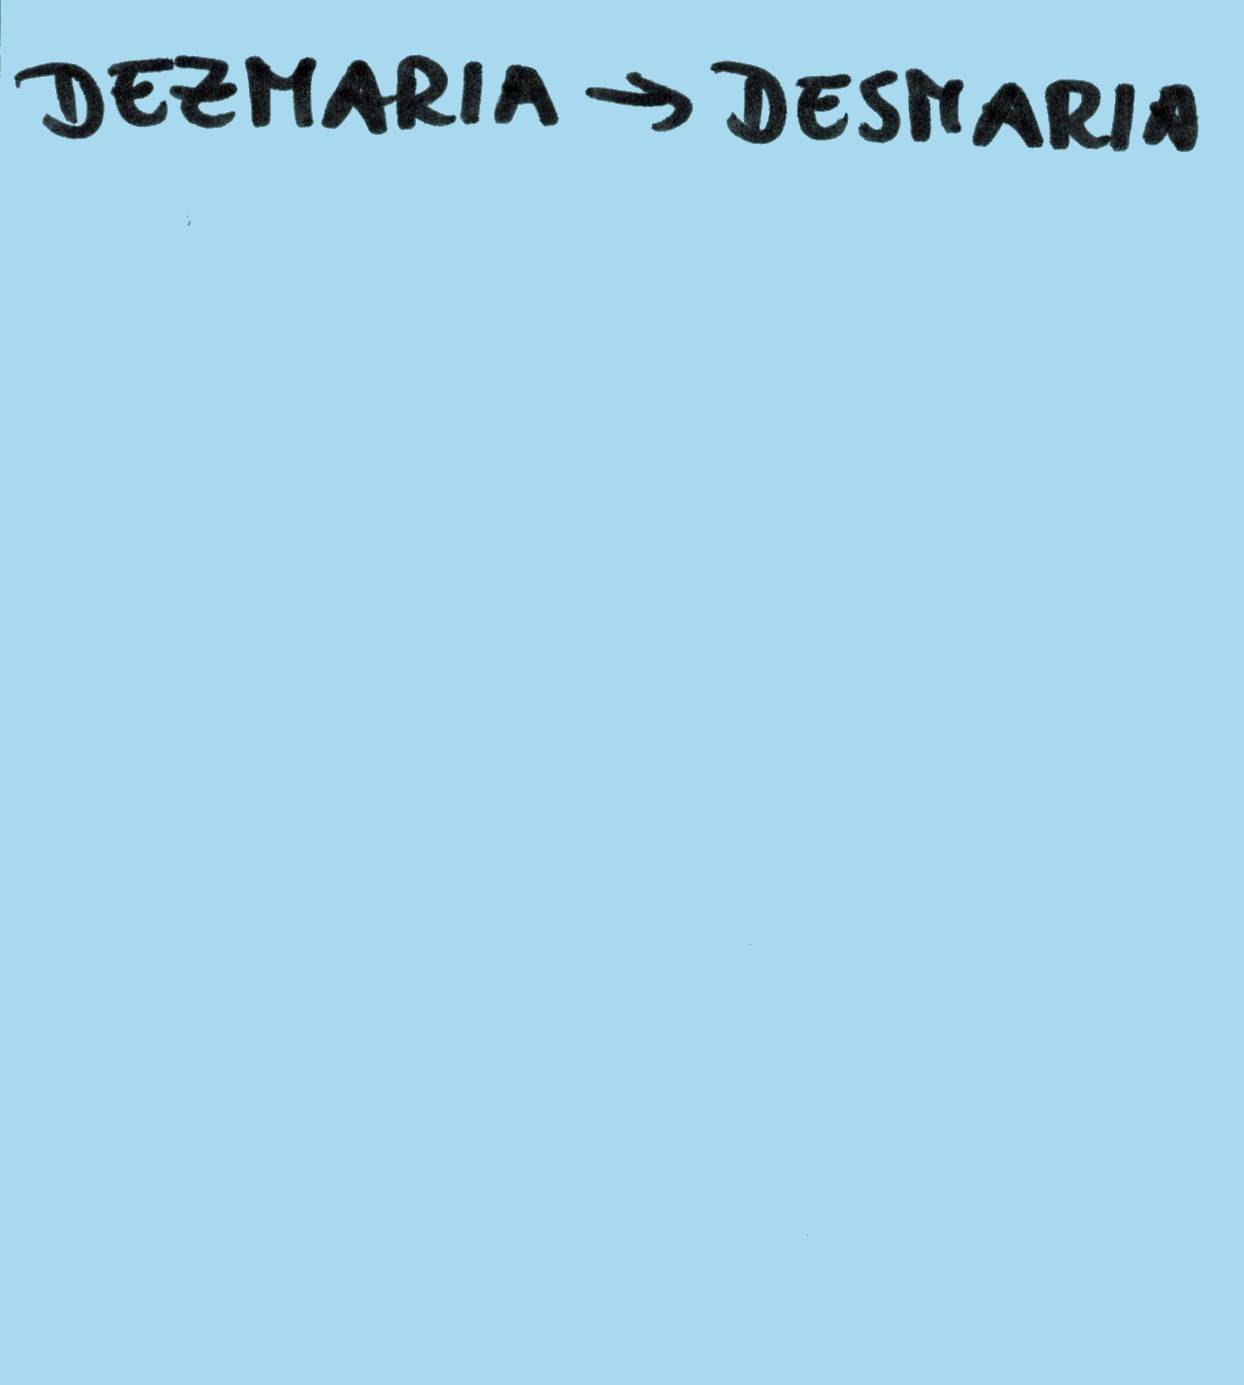 DEZMARIA → DESMARIA